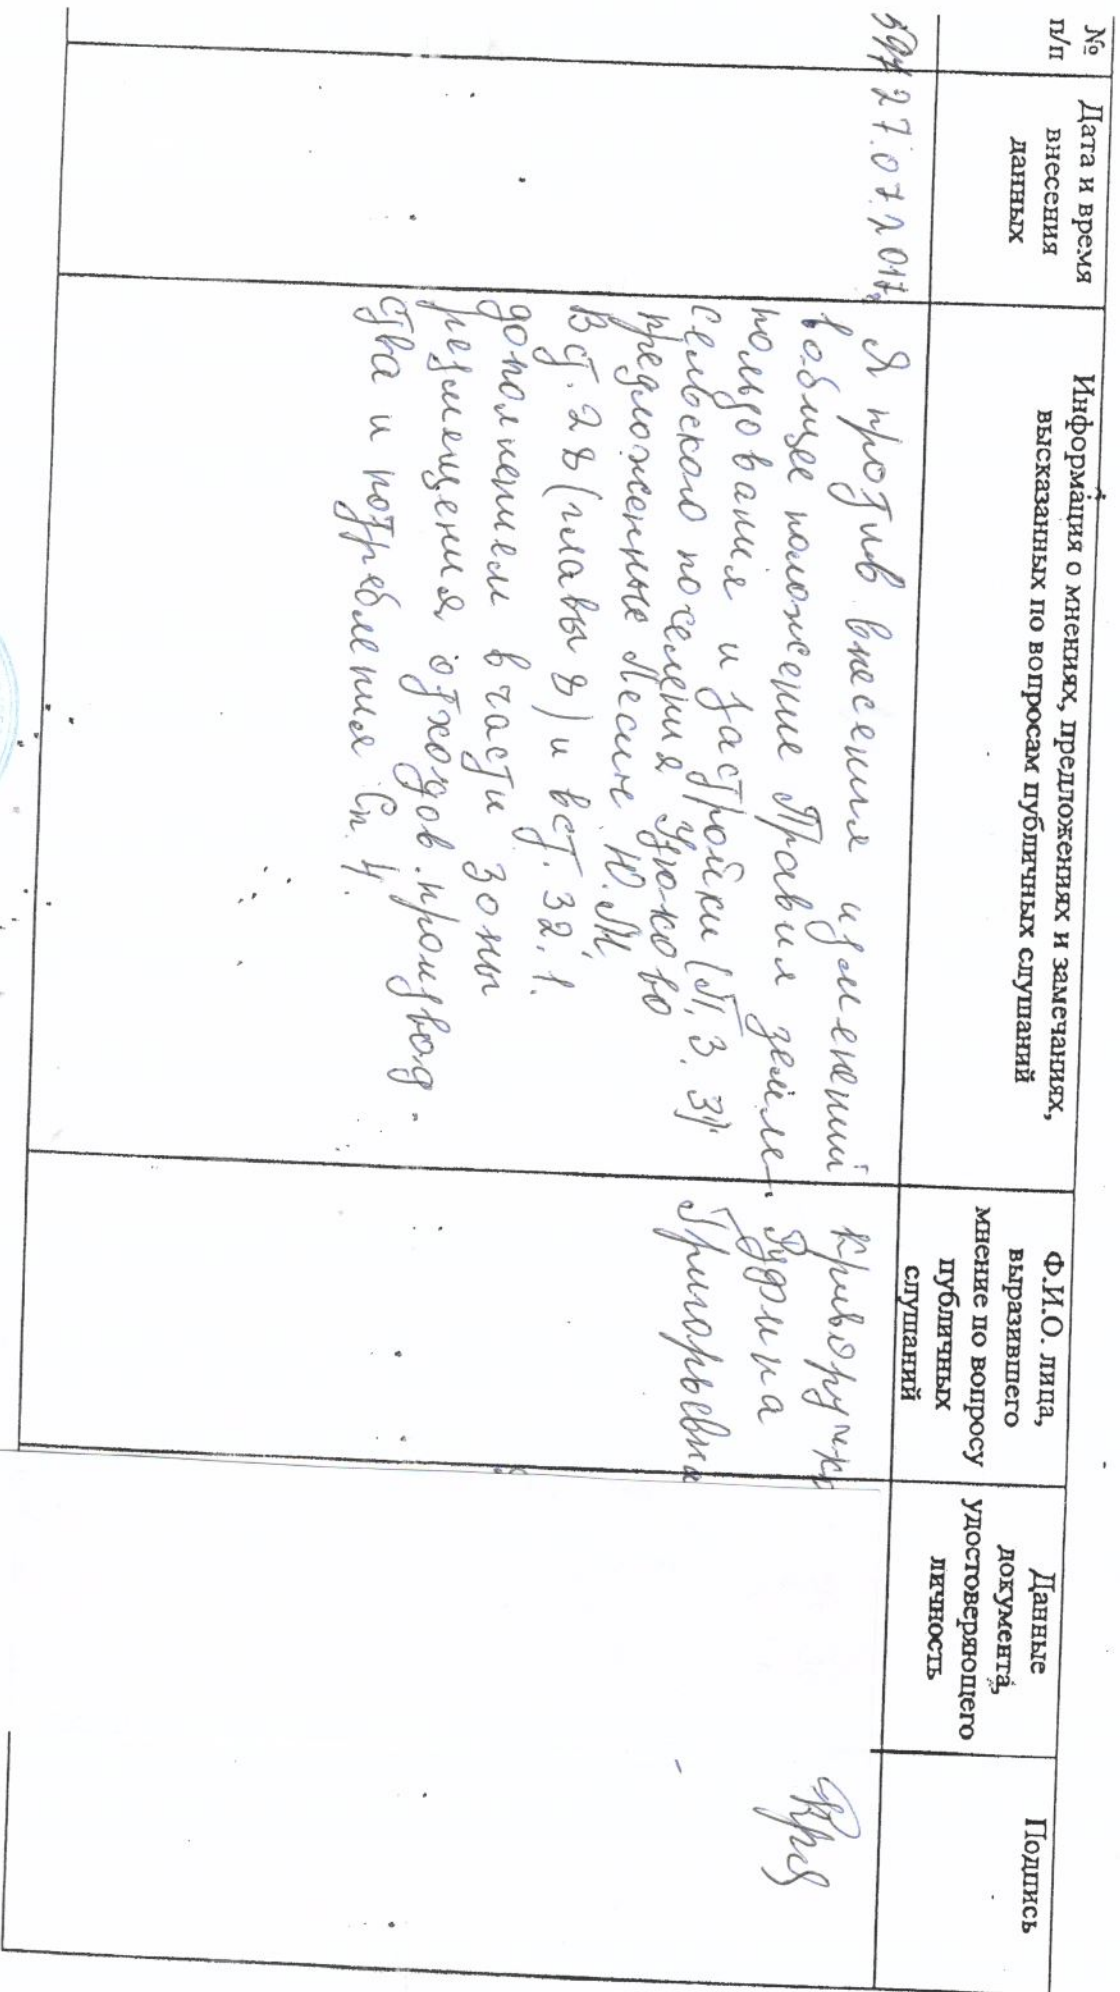 №
п/п
Дата и время
внесения
данных
Информация о мнениях, предложениях и замечаниях,
высказанных по вопросам публичных слушаний
Ф.И.О. лица,
выразившего
мнение по вопросу
публичных
слушаний
Данные
документа,
удостоверяющего
личность
Подпись
27.07.2017г
Я против внесения изменений
в общее положение Правил земле-
пользования и застройки (П.З.З)
сельского поселения Узюково
предложенные Лесине Ю.М,
В ст. 28 (главы 8) и в ст. 32.1.
дополнением в части зоны
размещения отходов производ-
ства и потребления Сп 4.
Криворучко
Руфина
Григорьевна